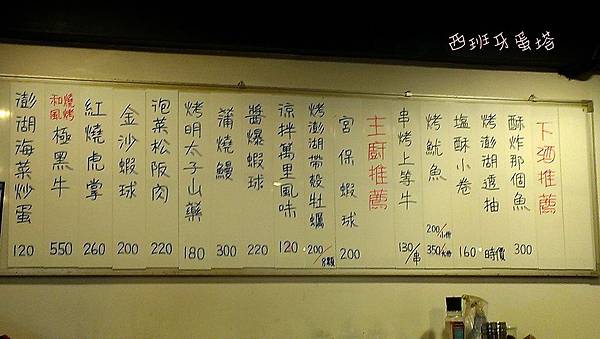 西班牙蛋塔
下酒推薦
酥炸那個魚 300
烤澎湖透抽 時價
塩酥小卷 160
烤魷魚 200/小份 350/大份
串烤上等牛 130/串
主廚推薦
宮保蝦球 200
烤澎湖帶殼牡蠣 200/8顆
涼拌萬里風味 120
醬爆蝦球 220
蒲燒鰻 300
烤明太子山藥 180
泡菜松阪肉 220
金沙蝦球 200
紅燒虎掌 260
和風燒烤極黑牛 550
澎湖海菜炒蛋 120